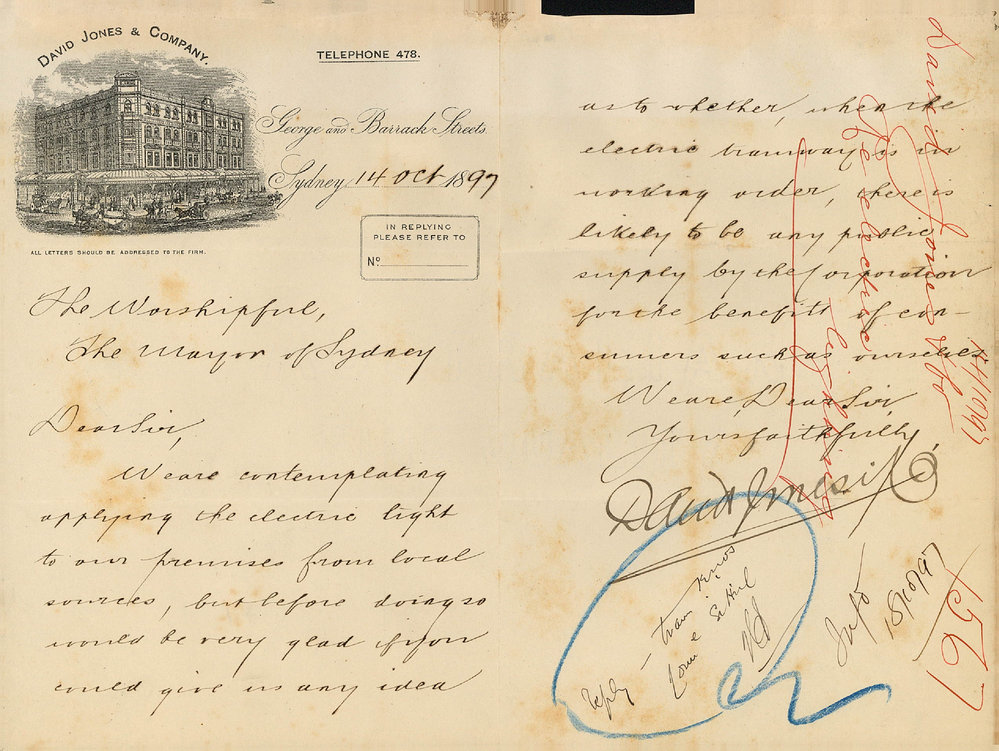 DAVID JONES & COMPANY.
TELEPHONE 478.
George and Barrack Streets.
Sydney, 14 Oct 1897
IN REPLYING
PLEASE REFER TO
No.
ALL LETTERS SHOULD BE ADDRESSED TO THE FIRM.
The Worshipful,
The Mayor of Sydney
Dear Sir,
We are contemplating
applying the electric light
to our premises from local
sources, but before doing so
would be very glad if you
could give us any idea
as to whether, when the
electric tramway is in
working order, there is
likely to be any public
supply by the Corporation
for the benefitt of con-
sumers such as ourselves.
We are, Dear Sir,
Yours faithfully,
David Jones & Co
David Jones & Co
14/10/97
Re electric
lighting
Reply
Info
18/10/97
1567